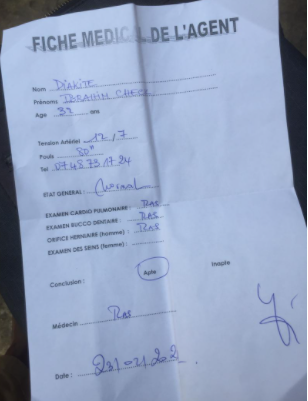 FICHE MEDICAL DE L'AGENT
Nom DIAKITE
Prénoms IBRAHIM CHECK
Age 32 ans
Tension Artériel 12,7
Pouls 80"
Tel 0748731724
ETAT GENERAL : Normal
EXAMEN CARDIO PULMONAIRE : RAS
EXAMEN BUCCO DENTAIRE : RAS
ORIFICE HERNIAIRE (homme) : RAS
EXAMEN DES SEINS (femme) :
Conclusion : Apte Inapte
Médecin RAS
Date :